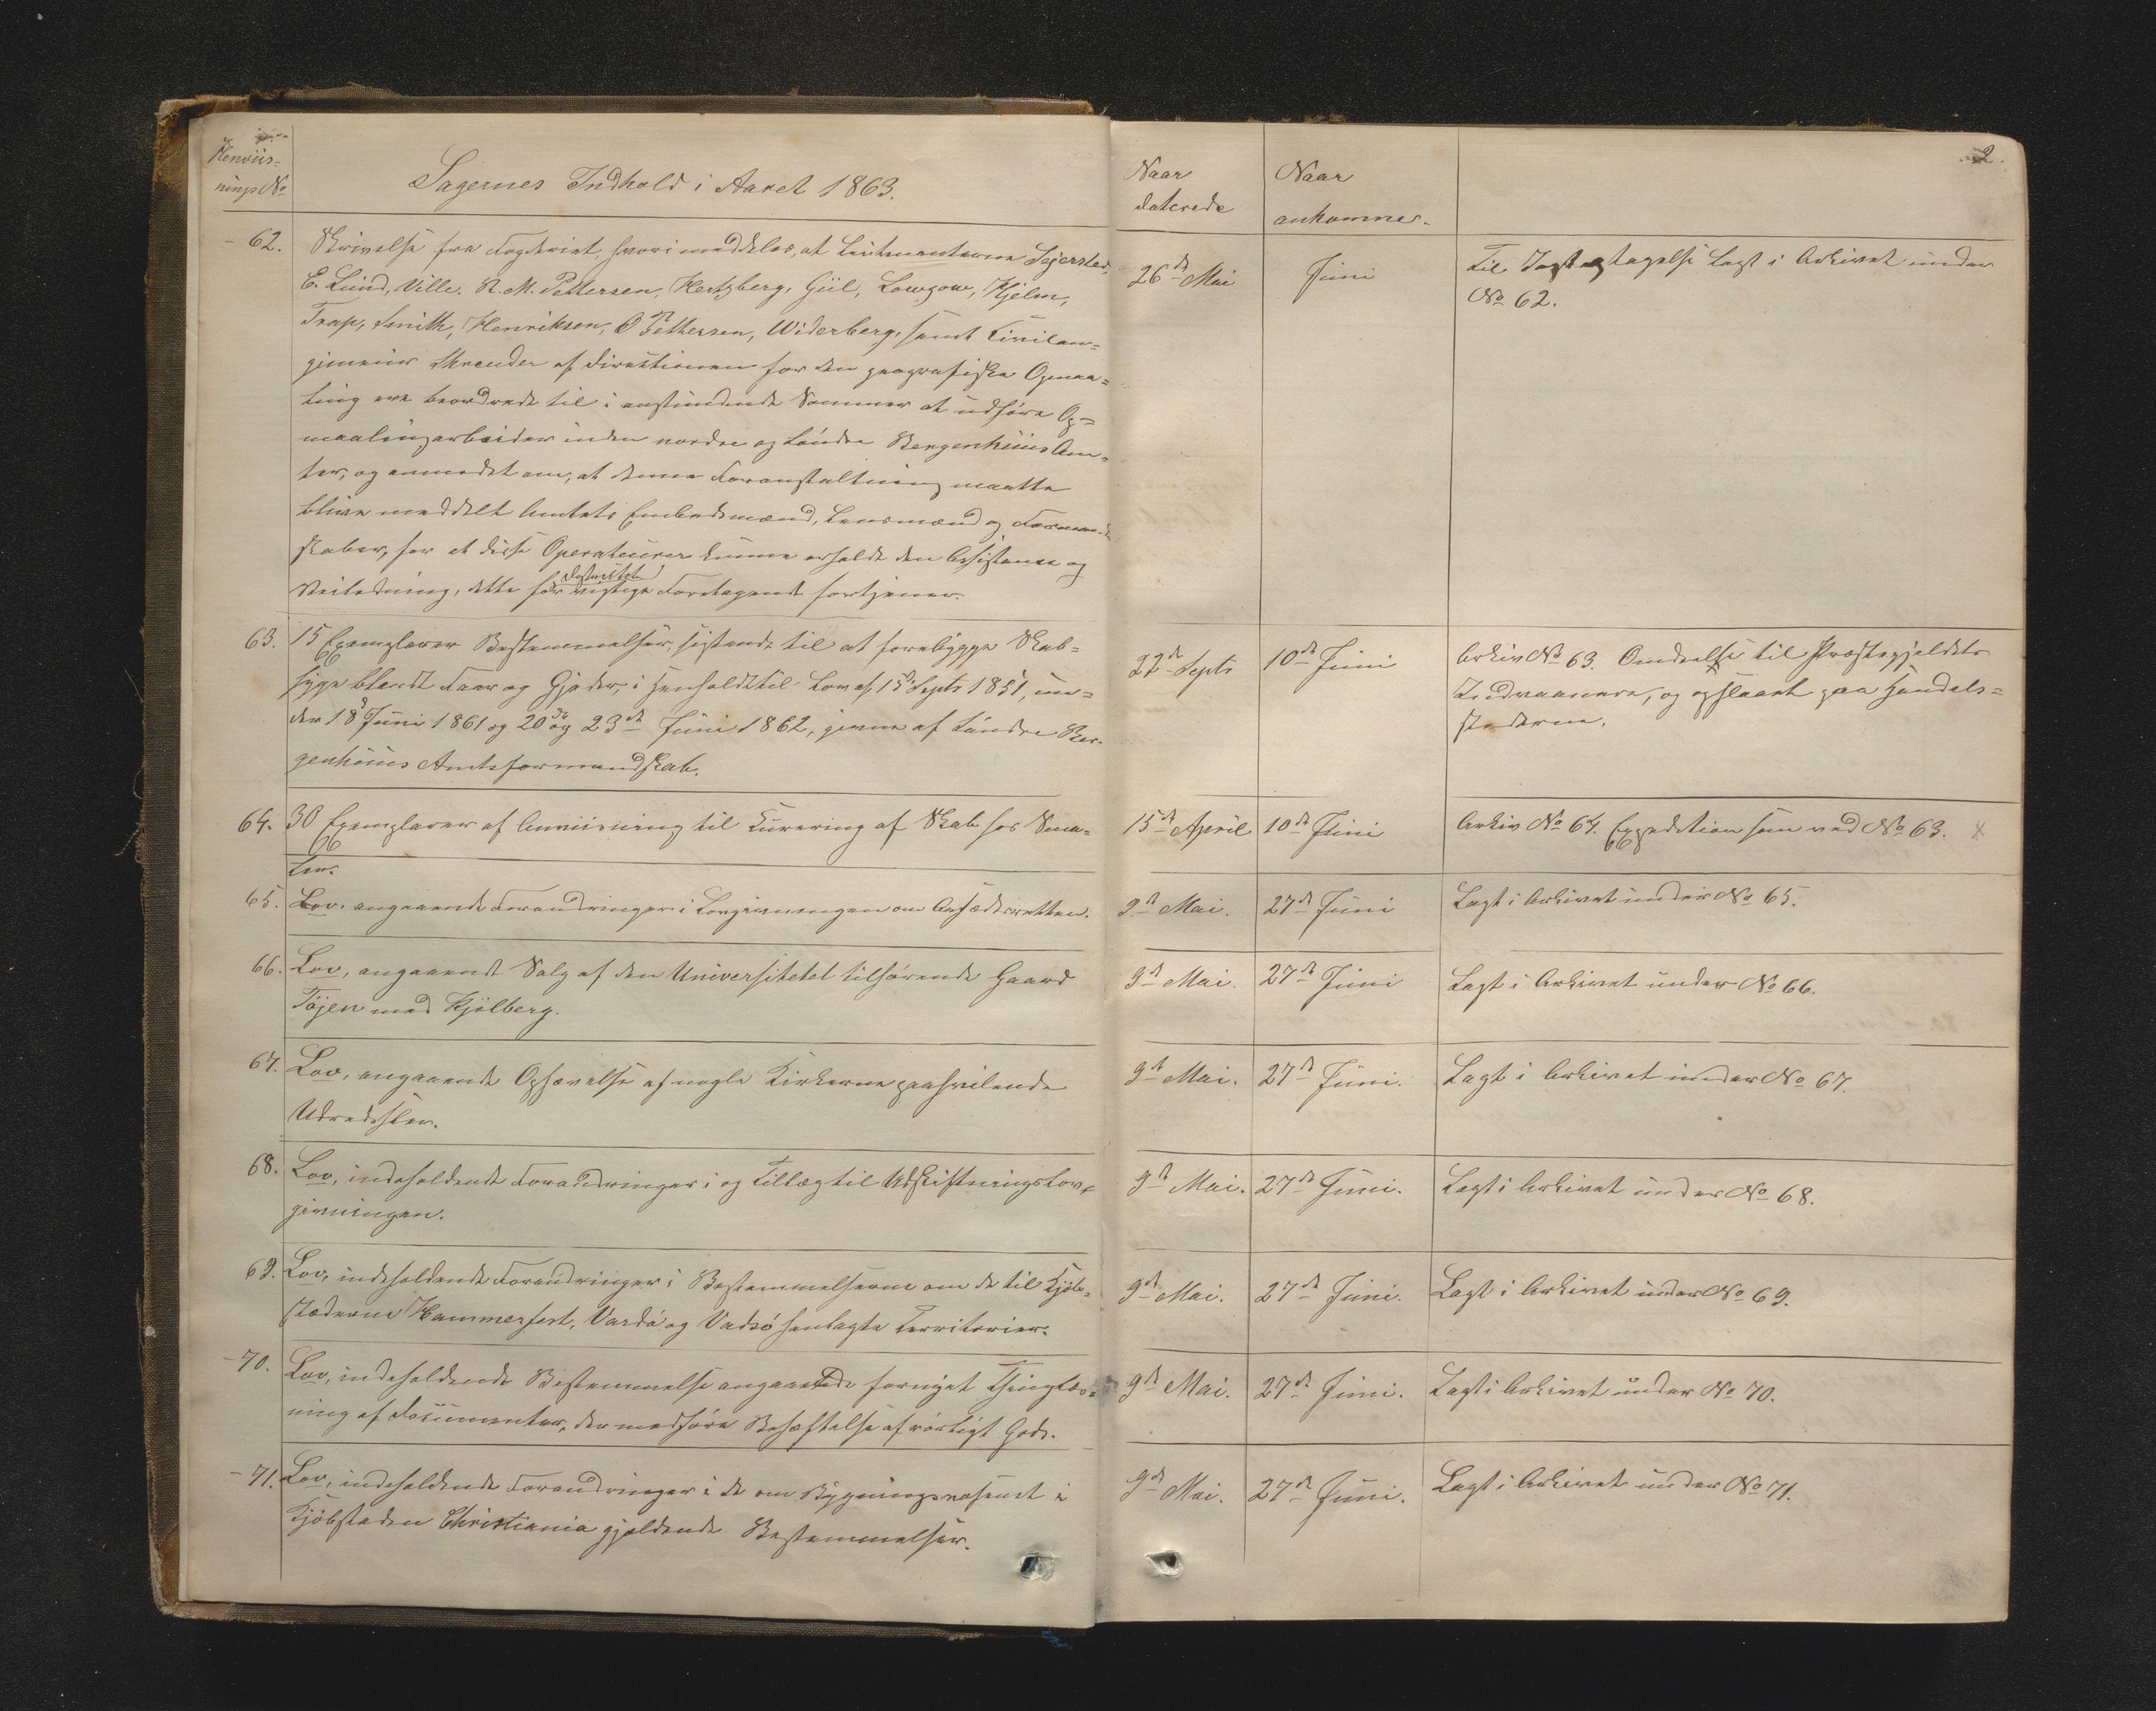 Henviis-
nings No
Sagernes Indhold i Aaret 1863.
Naar
daterede
Naar
ankommer.
2.
62. Skrivelse fra Fogderiet, hvori meddeles, at Leitenanterne Sejersted,
E. Lund, Wille. R. M. Pettersen, Hertzberg, Giil, Lowzow, Hjelm,
Trap, Smith, Henriksen, O Pettersen, Widerberg, samt Civilin-
genieur af Direktionen for den geografiske Opmaa-
ling ere beordrede til i anstundende Sommer at udføre Op-
maalingsarbeider inden nordre og Søndre Bergenhuus Am-
ter, og anmodet om, at denne Foranstaltning maatte
blive meddelt Amtets Embedsmænd, Lensmænd og Formand-
skaber, for at disse Operateurer kunne erholde den Assistance og
Veiledning, dette for vigtige Foretagende fortjener.
26de Mai
Juni
Til Iagttagelse Lagt i Arkivet under
No 62.
63. 15 Exemplarer Bestemmelser, sigtende til at forebygge Skab-
syge blandt Faar og Gjeder, i Henhold til Lov af 15de Septr 1851, un-
der 18de Juni 1861 og 20de og 23de Juni 1862, givne af Søndre Ber-
genhuus Amtsformandskab.
22de Septr
10de Juni
Arkiv No 63. Omdeelte til Præstegjeldets
Indvaanere, og opslaaet paa Handels-
stederne.
64. 30 Exemplarer af Anviisning til Kurering af Skab hos Smaa-
feer.
15de April
10de Juni
Arkiv No 64. Expedition som ved No 63. x
65. Lov, angaaende Forandringer i Lovgivningen om Aasædesretten.
9de Mai.
27de Juni
Lagt i Arkivet under No 65.
66. Lov, angaaende Salg af den Universitetet tilhørende Gaard
Tøjen med Kjølberg.
9de Mai.
27de Juni
Lagt i Arkivet under No 66.
67. Lov, angaaende Ophævelse af nogle Kirkerne paahvilende
Udredsler.
9de Mai.
27de Juni.
Lagt i Arkivet under No 67.
68. Lov, indeholdende Forandringer i og Tillæg til Udskiftningslov-
givningen.
9de Mai.
27de Juni.
Lagt i Arkivet under No 68.
69. Lov, indeholdende Forandringer i Bestemmelserne om de til Kjøb-
stæderne Hammerfest, Vardø og Vadsø henlagte Territorier.
9de Mai.
27de Juni.
Lagt i Arkivet under No 69.
70. Lov, indeholdende Bestemmelse angaaende fornyet Thinglæs-
ning af Documenter, der medføre Behæftelse af rørligt Gods.
9de Mai.
27de Juni.
Lagt i Arkivet under No 70.
71. Lov, indeholdende Forandringer i de om Bygningsvæsenet i
Kjøbstaden Christiania gjeldende Bestemmelser.
9de Mai.
27de Juni.
Lagt i Arkivet under No 71.